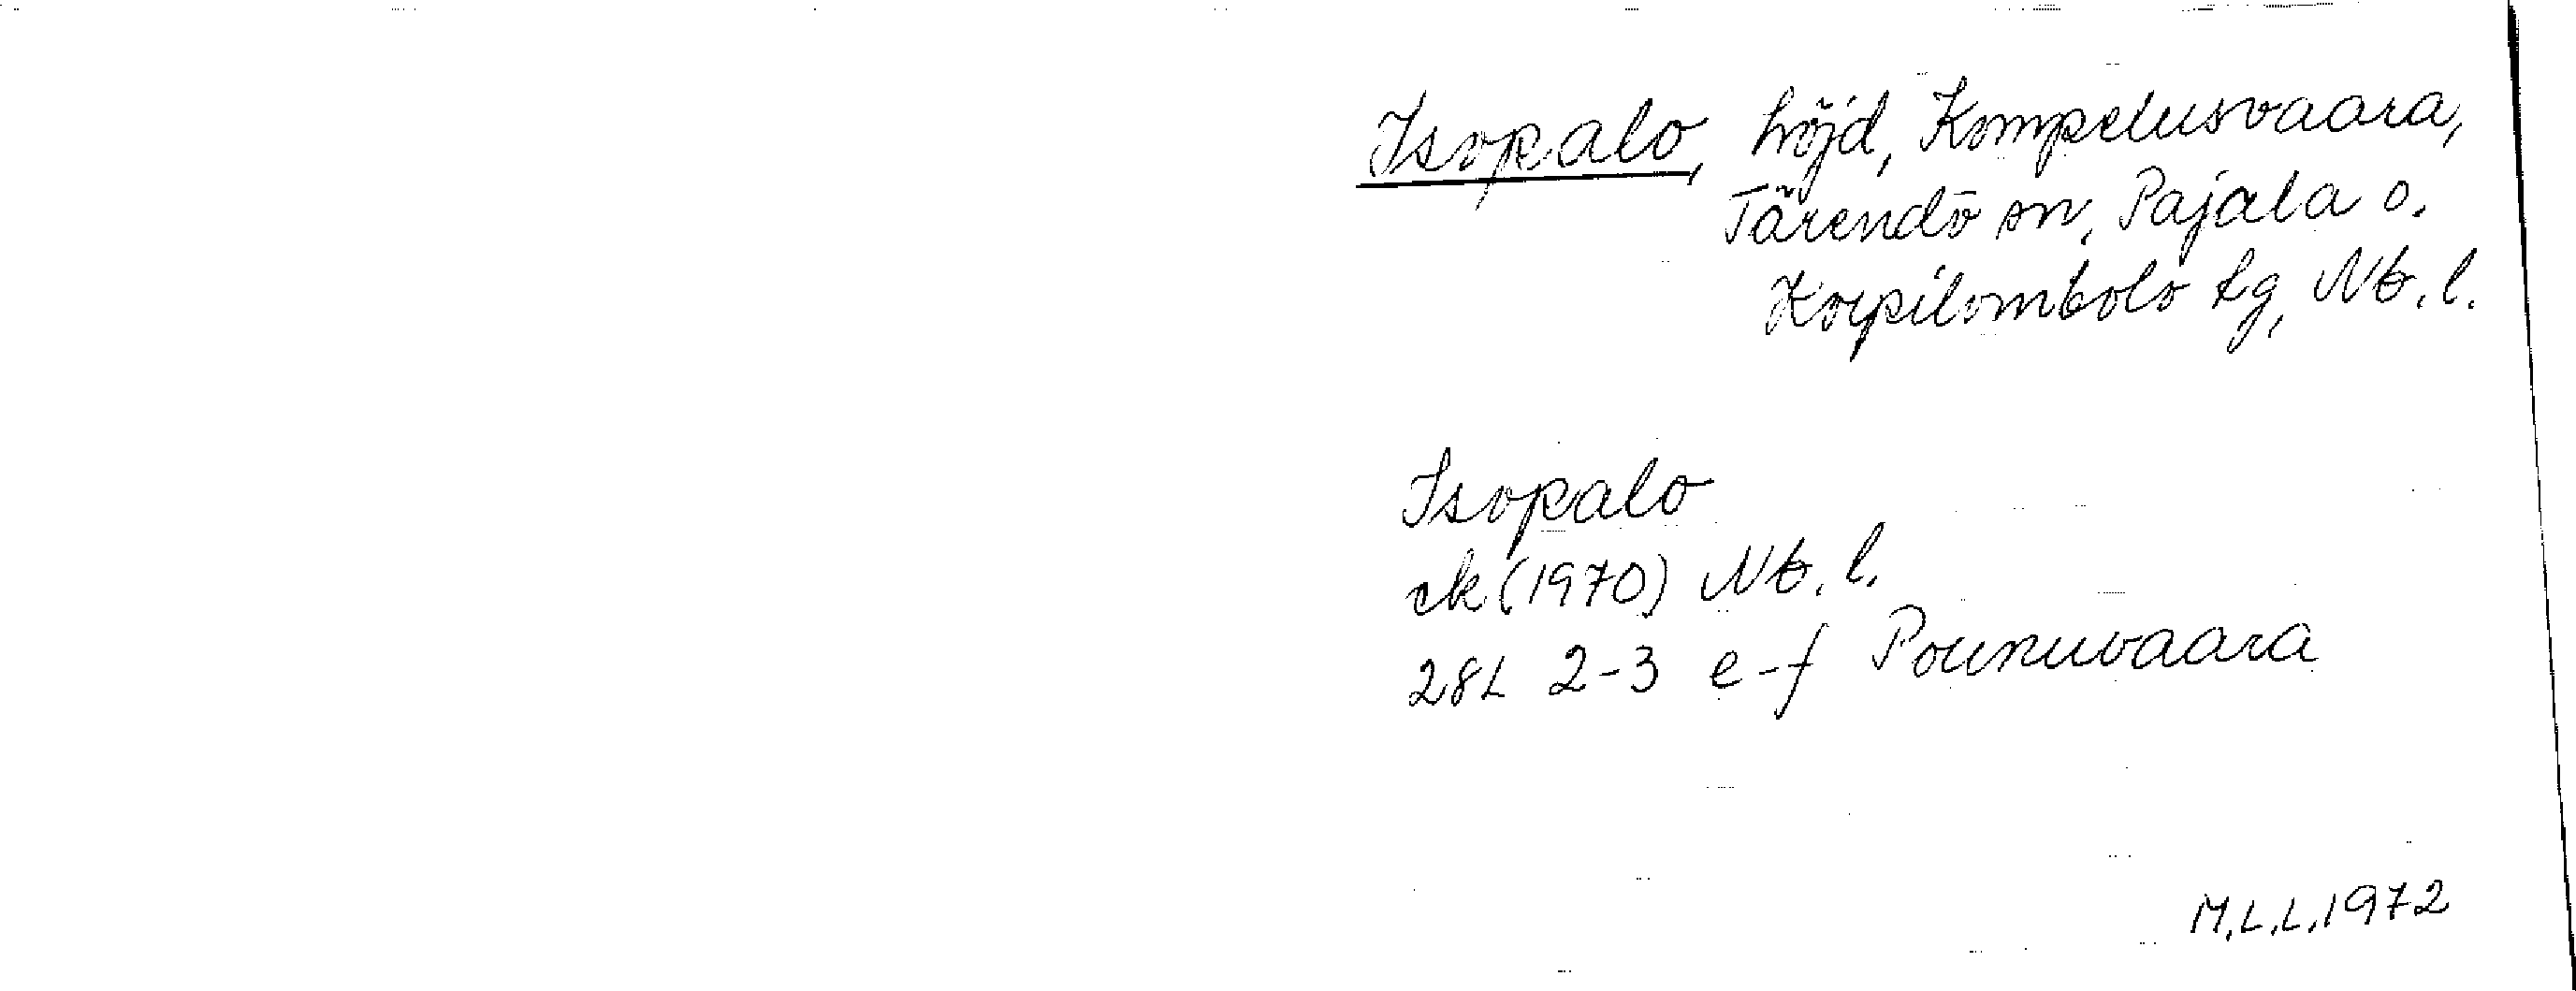 Isopalo, höjd, Kompelusvaara,
Tärendö sn, Pajala o.
Korpilombolo tg, Nb. l.
Isopalo
ek (1970) Nb. l.
28L 2-3 e-f Pounuvaara
M.L.L. 1972